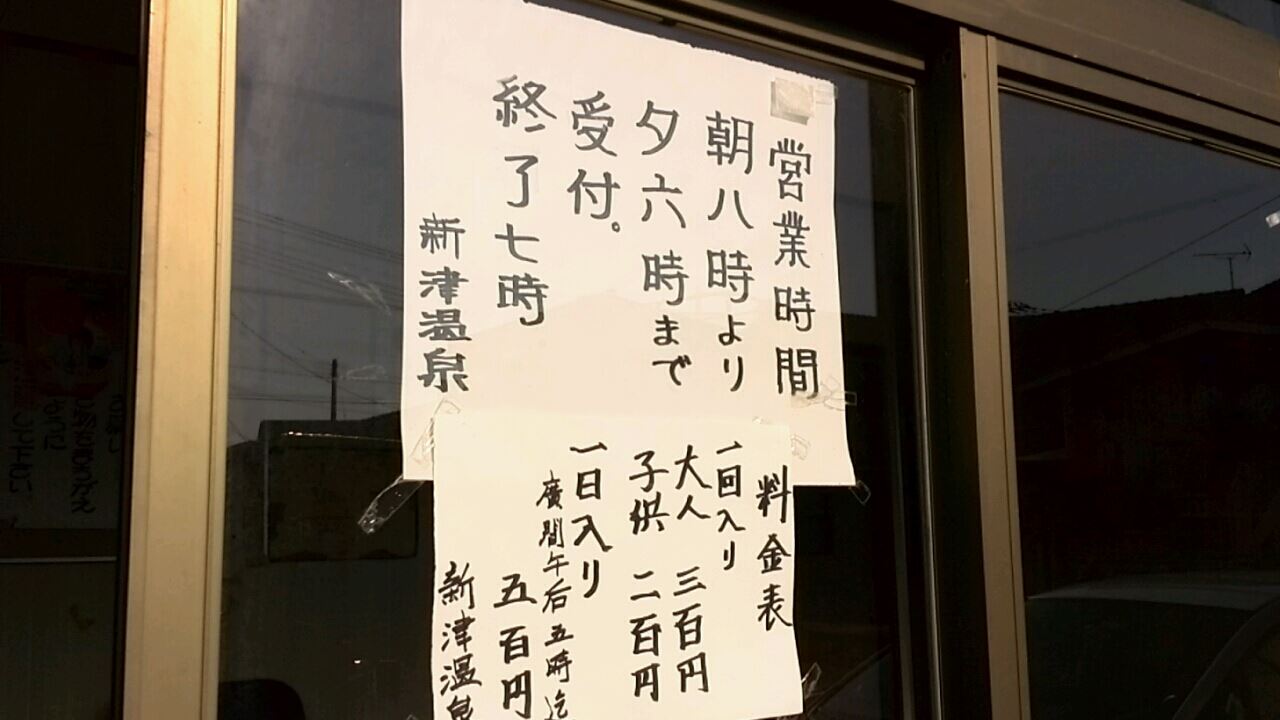 営業時間
朝八時より
夕六時まで
受付。
終了七時
新津温泉
料金表
一回入り
大人 三百円
子供 二百円
一日入り
廣間午后五時迄
五百円
新津温泉